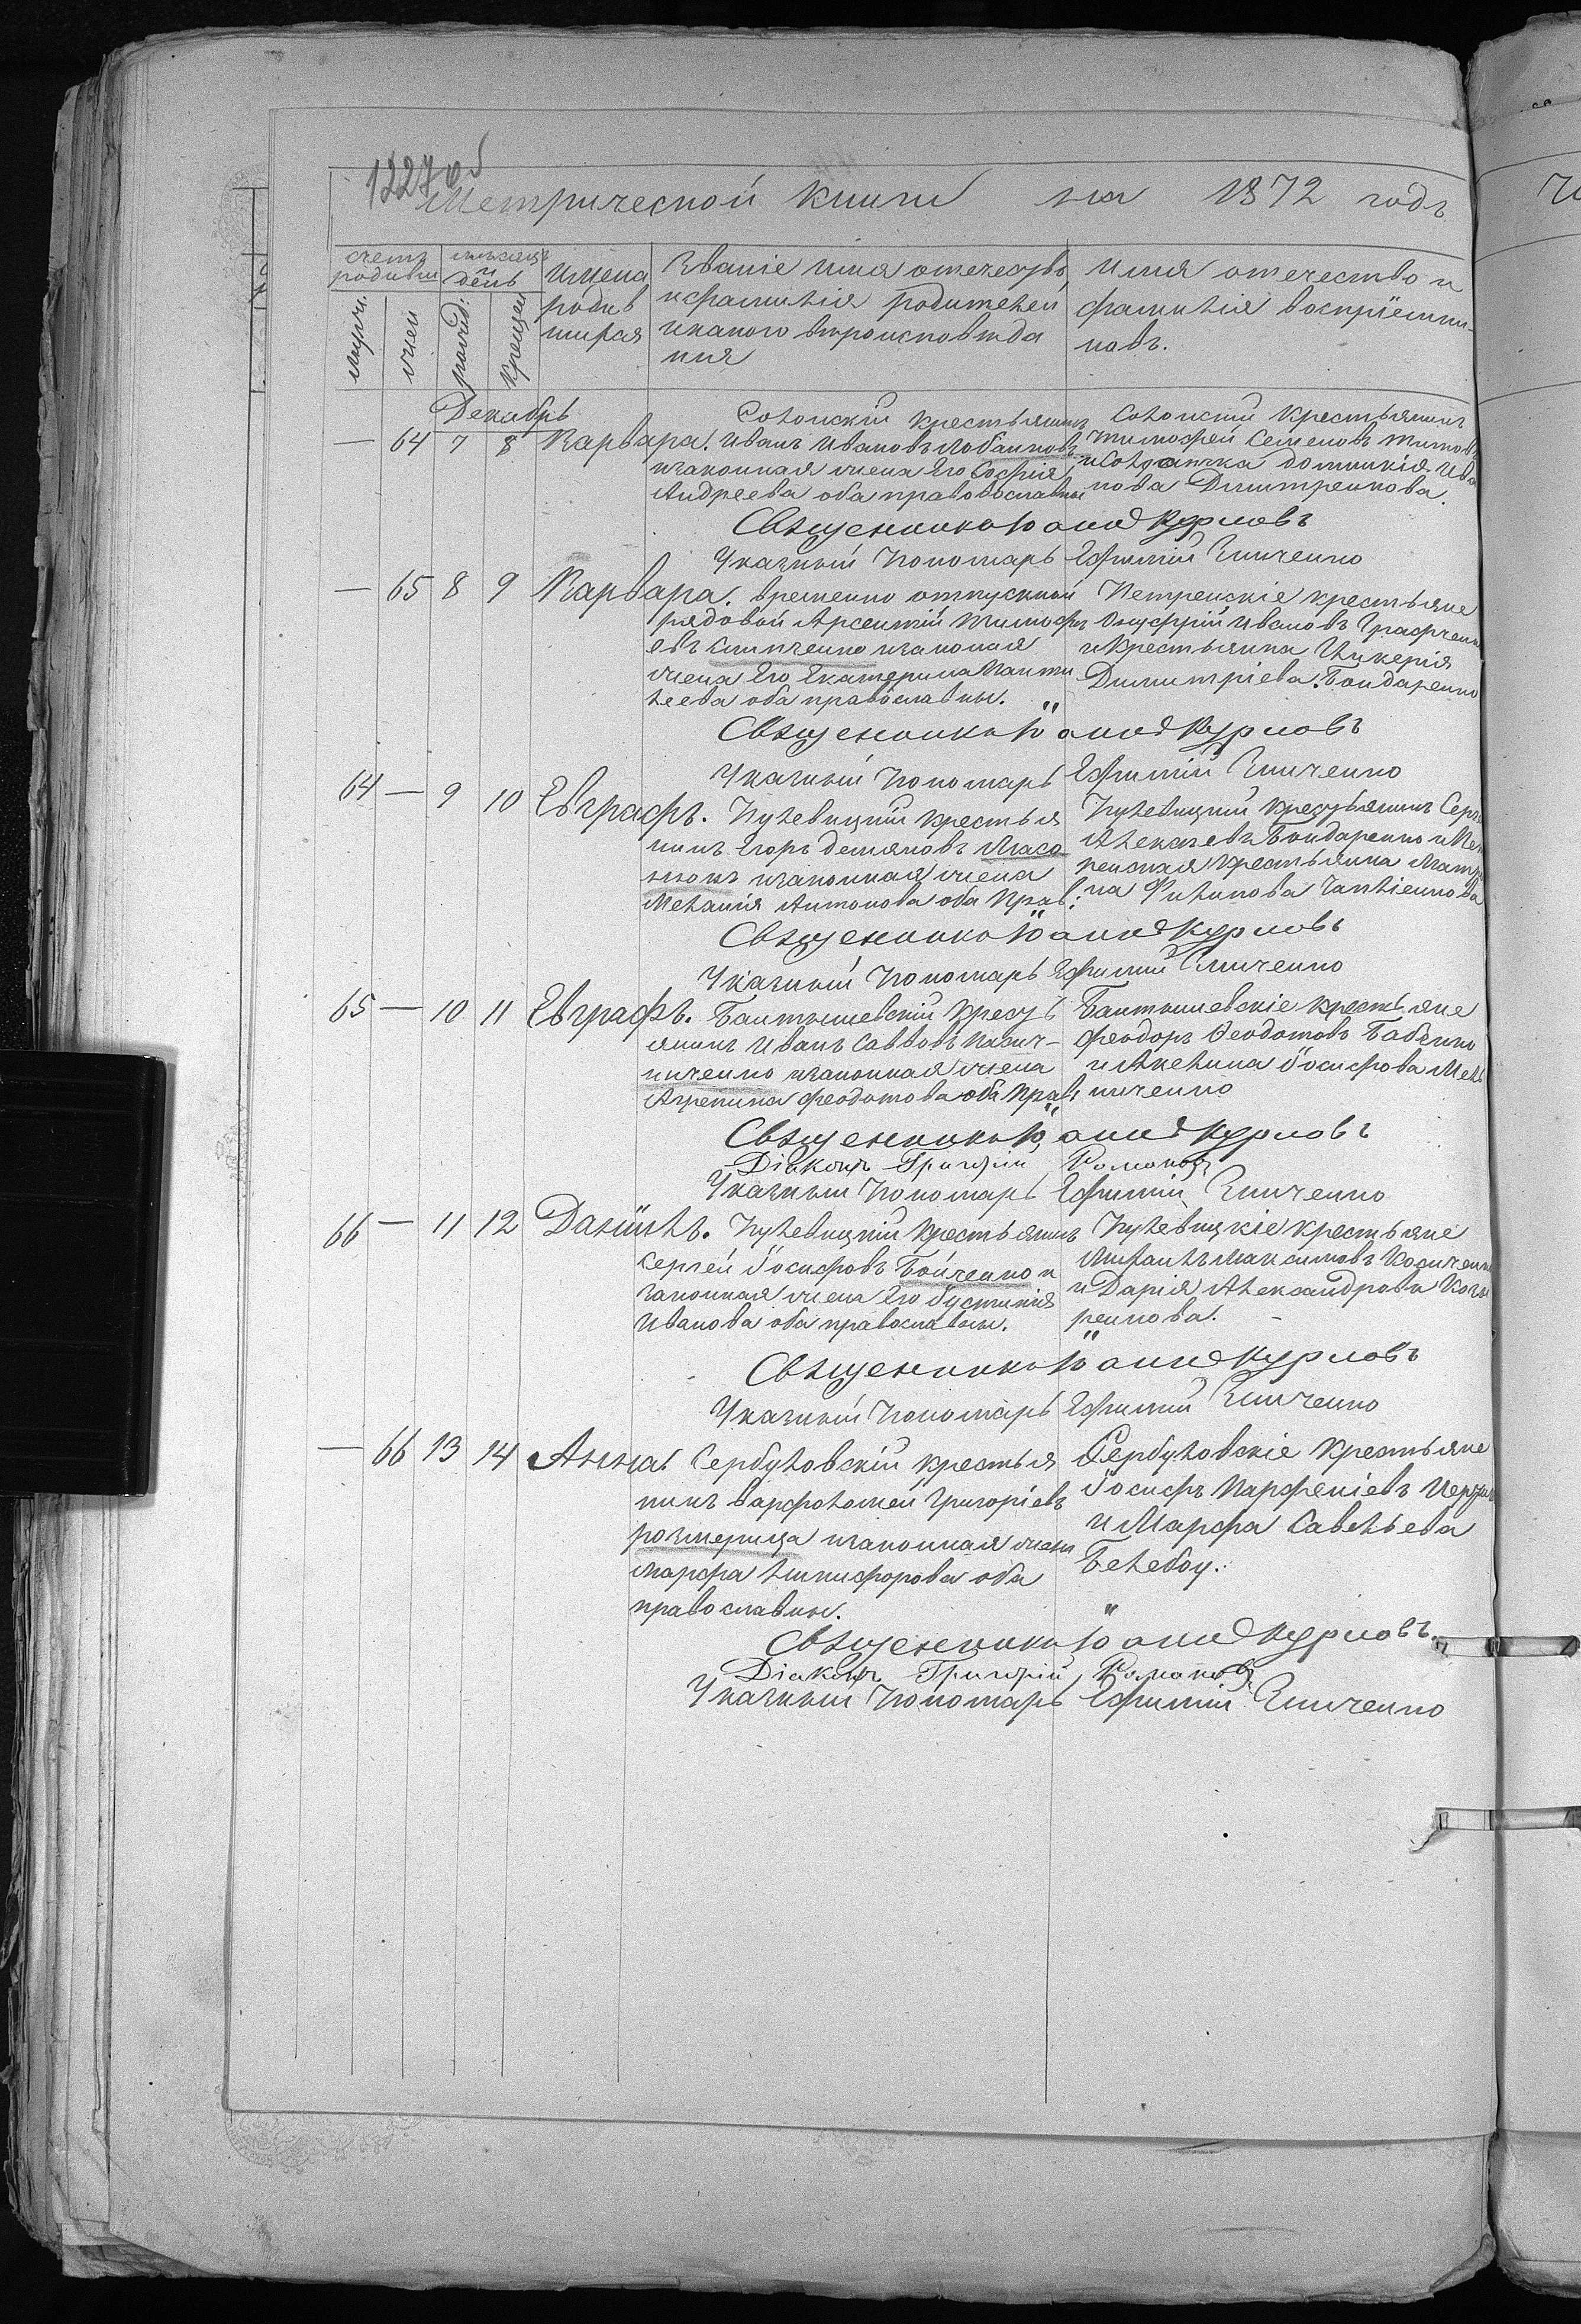 1227 об
Метрической книги на 1872 годъ
счетъ родивш
мужч.
жен
месяцъ и день
рожд:
крещен
Имена родившихся
Званіе имя отечество,
и фамилія родителей
и какого вѣроисповѣда
нія
Имя отечество и
фамилія воспріемни-
ковъ.
Декабрь
— 64 7 8 Варвара.
Солонскій крестьянинъ
Иванъ Ивановъ Лобанковъ
и законная жена Его Софія
Андреева оба православные
Солонский крестьянинъ
Тимофей Семеновъ Титов
и Солдатка Домникія Ива
нова Димитренкова.
Священникъ Іоаннъ Курловъ
Указный Пономарь Ефимій Зинченко
— 65 8 9 Варвара.
временно отпускной
рядовой Арсентій Тимофе
евъ Климченко и законая
жена Его Екатерина Панти
леева оба православные.
Петренскіе крестьяне
Онуфрій Ивановъ Графченк
и крестьянка Гликерія
Димитріева Бондаренко
Священникъ Іоаннъ Курловъ
Указный Пономарь Ефимій Зинченко
64 — 9 10 Евграфъ.
Кулевицкій крестья
нинъ Егоръ Демяновъ
и законная жена
Меланія Антонова оба Прав:
Кулевицкий крестьянинъ Серг
Алексеевъ Бондаренко и Пет
ренская крестьянка Матре
на Филипова
Священникъ Іоаннъ Курловъ
Указный Пономарь Ефимий Зинченко
65 — 10 11 Евграфъ.
Бантышевскій крестьь
янинъ Иванъ Саввовъ
и законная жена
Агрепина Феодотова оба Прав,
Бантышевскіе крестьяне
Феодоръ Феодотовъ Бабенко
и Акелина Іосифова Мель
ниченко
Священникъ Іоаннъ Курловъ
Діаконъ Григорій Романовъ
Указный Пономарь Ефимій Зинченко
66 — 11 12 Даніилъ.
Кулевицкій крестьянинъ
Сергей Іосифовъ Бойченко и
законная жена Его Іустинія
Иванова оба православные.
Кулевицкіе крестьяне
Михаилъ Максимовъ
и Дарія Александрова
ренкова.
Священникъ Іоаннъ Курловъ
Указный Пономарь Ефимий Зинченко
— 66 13 14 Анна.
Сербуловскій крестья
нинъ Варфоломей Григоріевъ
розмерица и законная жена
Марфа Никифорова оба
православные.
Сербуловскіе крестьяне
Іосифъ Парфеніевъ
и Марфа Савельева
Белебоу.
Священникъ Іоаннъ Курловъ.
Діаконъ Григорій Романовъ
Указный Пономарь Ефимій Зинченко